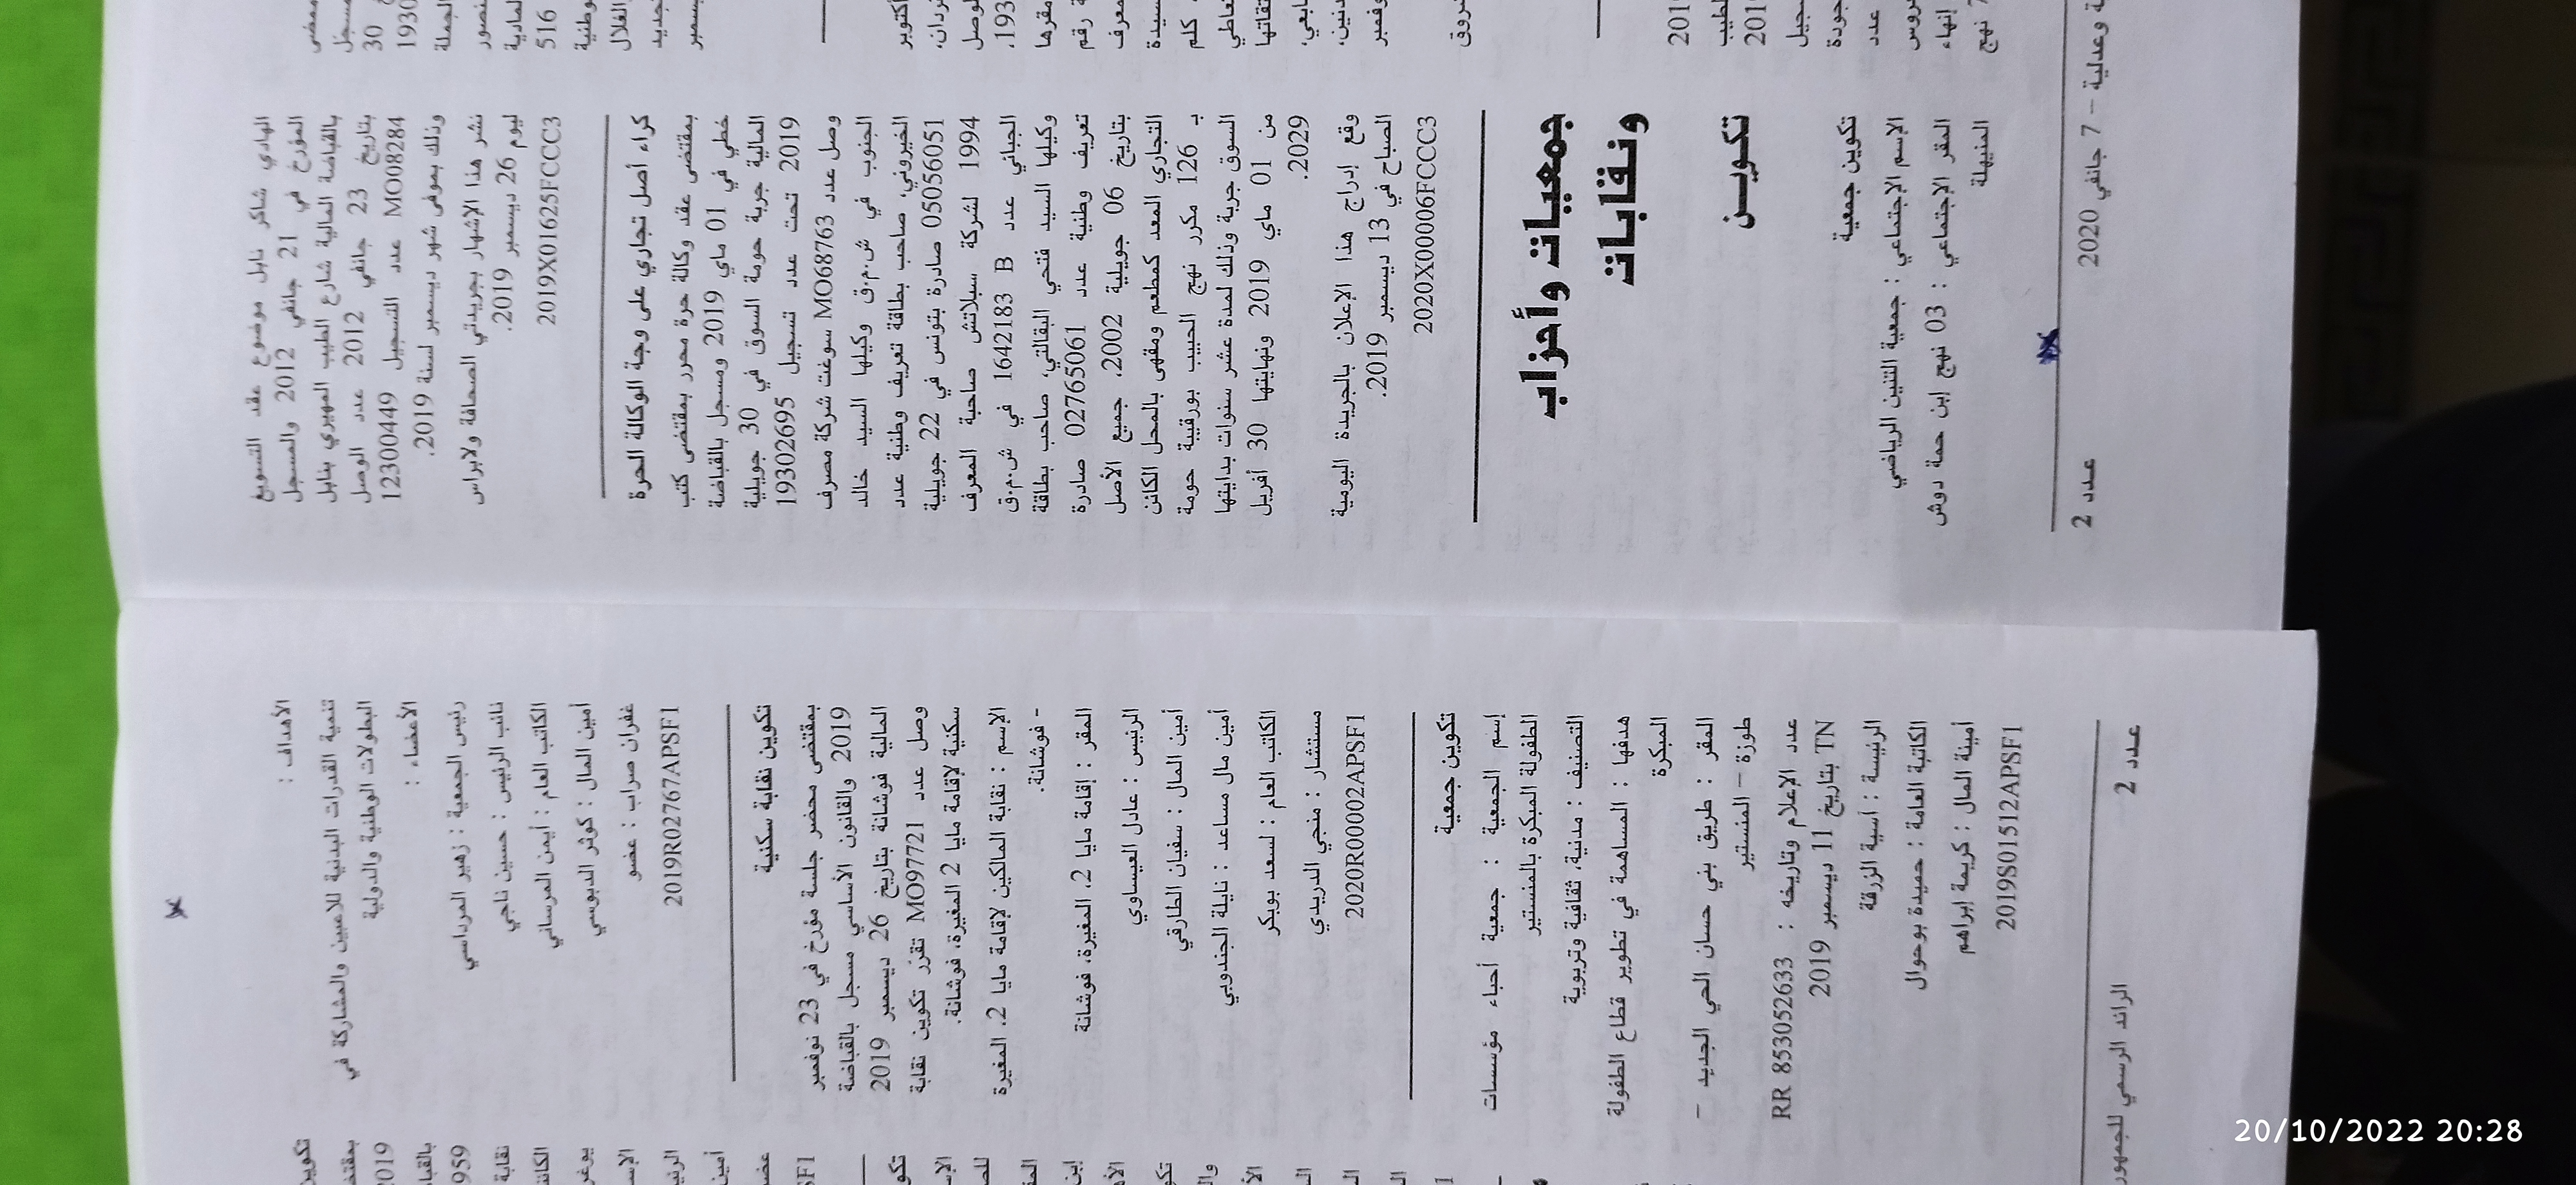 الهادي شاكر نابل موضوع عقد التسويغ
المؤرخ في 21 جانفي 2012 والمسجل
بالقباضة المالية شارع الطيب المهيري بنابل
بتاريخ 23 جانفي 2012 عدد الوصل
12300449 عدد التسجيل MO008284
وذلك بموفى شهر ديسمبر لسنة 2019.
نشر هذا الإشهار بجريدتي الصحافة ولابراس
ليوم 26 ديسمبر 2019.
2019X01625FCCC3
كراء أصل تجاري على وجة الوكالة الحرة
بمقتضى عقد وكالة حرة محرر بمقتضى كتب
خطي في 01 ماي 2019 ومسجل بالقباضة
المالية جربة حومة السوق في 30 جويلية
2019 تحت عدد تسجيل 19302695
وصل عدد MO68763 سوغت شركة مصرف
الجنوب في ش.م.ق وكيلها السيد خالد
الخيروني، صاحب بطاقة تعريف وطنية عدد
05056051 صادرة بتونس في 22 جويلية
1994 لشركة سبلاتش صاحبة المعرف
الجبائي عدد 1642183 B في ش.م.ق
وكيلها السيد فتحي البقالتي، صاحب بطاقة
تعريف وطنية عدد 02765061 صادرة
بتاريخ 06 جويلية 2002، جميع الأصل
التجاري المعد كمطعم ومقهى بالمحل الكائن
بـ 126 مكرر نهج الحبيب بورقيبة حومة
السوق جربة وذلك لمدة عشر سنوات بدايتها
من 01 ماي 2019 ونهايتها 30 أفريل
2029.
وقع إدراج هذا الإعلان بالجريدة اليومية
الصباح في 13 ديسمبر 2019.
2020X00006FCCC3
جمعيات وأحزاب
ونقابات
تكويـــن
تكوين جمعية
الإسم الإجتماعي : جمعية التنين الرياضي
المقر الإجتماعي : 03 نهج إبن حمة دوش
المنيهلة
عدد 2
ة وعدلية – 7 جانفي 2020
الأهداف :
تنمية القدرات البدنية للاعبين والمشاركة في
البطولات الوطنية والدولية
الأعضاء :
رئيس الجمعية : زهير المرداسي
نائب الرئيس : حسين ناجي
الكاتب العام : أيمن المرساني
أمين المال : كوثر الدبوسي
غفران صراب : عضو
2019R02767APSF1
تكوين نقابة سكنية
بمقتضى محضر جلسة مؤرخ في 23 نوفمبر
2019 والقانون الأساسي مسجل بالقباضة
المالية فوشانة بتاريخ 26 ديسمبر 2019
وصل عدد MO97721 تقرر تكوين نقابة
سكنية لإقامة مايا 2 المغيرة، فوشانة.
الإسم : نقابة المالكين لإقامة مايا 2، المغيرة
- فوشانة.
المقر : إقامة مايا 2، المغيرة، فوشانة
الرئيس : عادل العيساوي
أمين المال : سفيان الطارفي
أمين مال مساعد : نايلة الجندوبي
الكاتب العام : لسعد بوبكر
مستشار : منجي الدريدي
2020R00002APSF1
تكوين جمعية
إسم الجمعية : جمعية أحباء مؤسسات
الطفولة المبكرة بالمنستير
التصنيف : مدنية، ثقافية وتربوية
هدفها : المساهمة في تطوير قطاع الطفولة
المبكرة
المقر : طريق بني حسان الحي الجديد –
طوزة – المنستير
عدد الإعلام وتاريخه : RR 853052633
TN بتاريخ 11 ديسمبر 2019
الرئيسة : أسية الزرقة
الكاتبة العامة : حميدة بوحوال
أمينة المال : كريمة إبراهم
2019S01512APSF1
عدد 2
الرائد الرسمي للجمهور
20/10/2022 20:28